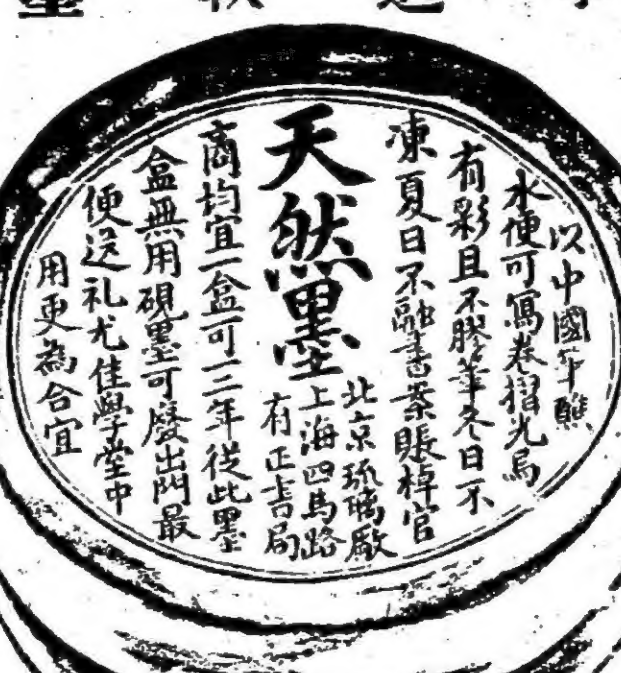 以中國筆蘸
水便可寫卷摺光烏
有彩且不膠筆冬日不
凍夏日不融書案賬棹官
天然墨
北京琉璃廠
上海四馬路
有正書局
商均宜一盒可二三年從此墨
盒無用硯墨可廢出門最
便送礼尤佳學堂中
用更為合宜